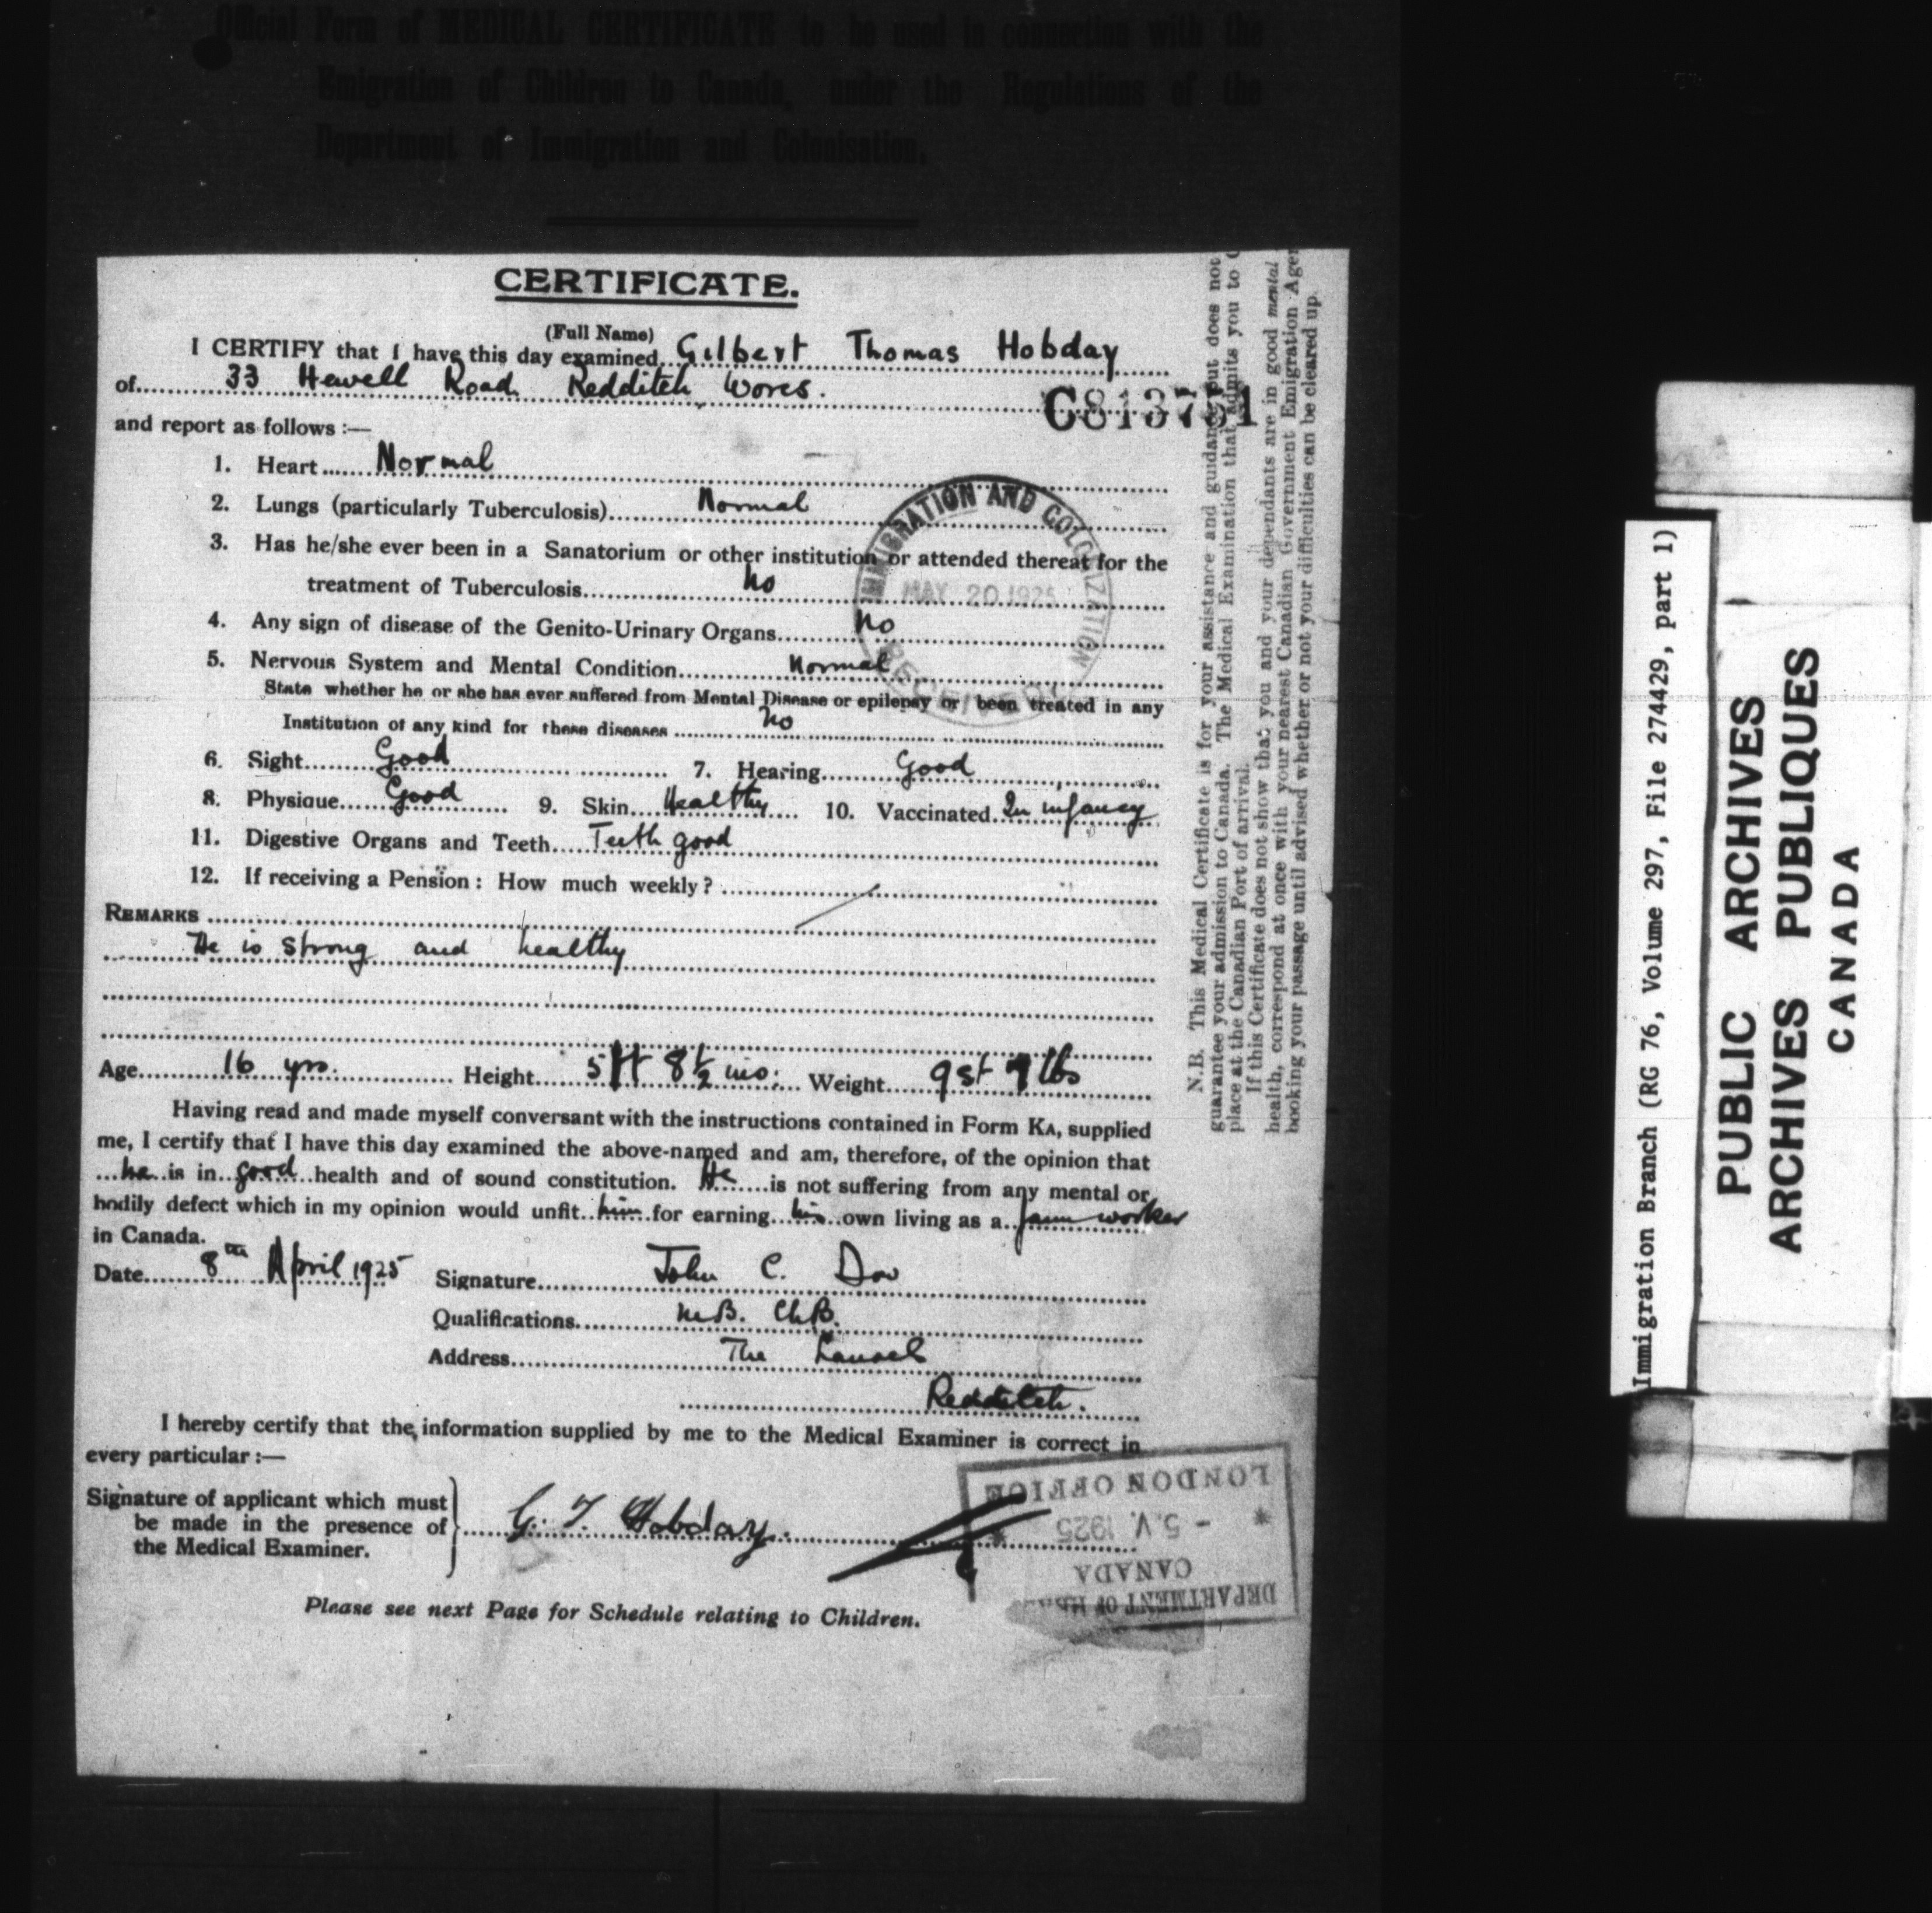 Official Form of MEDICAL CERTIFICATE to be used in connection with the
Emigration of Children to Canada, under the Regulations of the
Department of Immigration and Colonisation.
CERTIFICATE.
(Full Name)
I CERTIFY that I have this day examined Gilbert Thomas Hobday
of 33 Hewell Road Redditch Worcs.
C813751
and report as follows :—
1. Heart Normal
2. Lungs (particularly Tuberculosis) Normal
3. Has he/she ever been in a Sanatorium or other institution or attended thereat for the
treatment of Tuberculosis No
4. Any sign of disease of the Genito-Urinary Organs No
5. Nervous System and Mental Condition Normal
State whether he or she has ever suffered from Mental Disease or epilepsy or been treated in any
Institution of any kind for these diseases No
6. Sight Good 7. Hearing Good
8. Physique Good 9. Skin Healthy 10. Vaccinated In infancy
11. Digestive Organs and Teeth Teeth good
12. If receiving a Pension: How much weekly?
REMARKS
He is strong and healthy
Age 16 yrs. Height 5 ft 8½ ins. Weight 9st 9 lbs
Having read and made myself conversant with the instructions contained in Form KA, supplied
me, I certify that I have this day examined the above-named and am, therefore, of the opinion that
he is in good health and of sound constitution. He is not suffering from any mental or
bodily defect which in my opinion would unfit him for earning his own living as a farm worker
in Canada.
Date 8th April 1925 Signature John C. Dow
Qualifications M.B. Ch.B.
Address The Laurels
Redditch.
I hereby certify that the information supplied by me to the Medical Examiner is correct in
every particular :—
Signature of applicant which must
be made in the presence of
the Medical Examiner.
G. T. Hobday.
Please see next Page for Schedule relating to Children.
IMMIGRATION AND COLONIZATION
MAY 20 1925
RECEIVED
DEPARTMENT OF
CANADA
- 5.V.1925
LONDON OFFICE
N.B. This Medical Certificate is for your assistance and guidance but does not
guarantee your admission to Canada. The Medical Examination that admits you to C
place at the Canadian Port of arrival.
If this Certificate does not show that you and your dependants are in good mental
health, correspond at once with your nearest Canadian Government Emigration Agen
booking your passage until advised whether or not your difficulties can be cleared up.
Immigration Branch (RG 76, Volume 297, File 274429, part 1)
PUBLIC ARCHIVES
ARCHIVES PUBLIQUES
CANADA